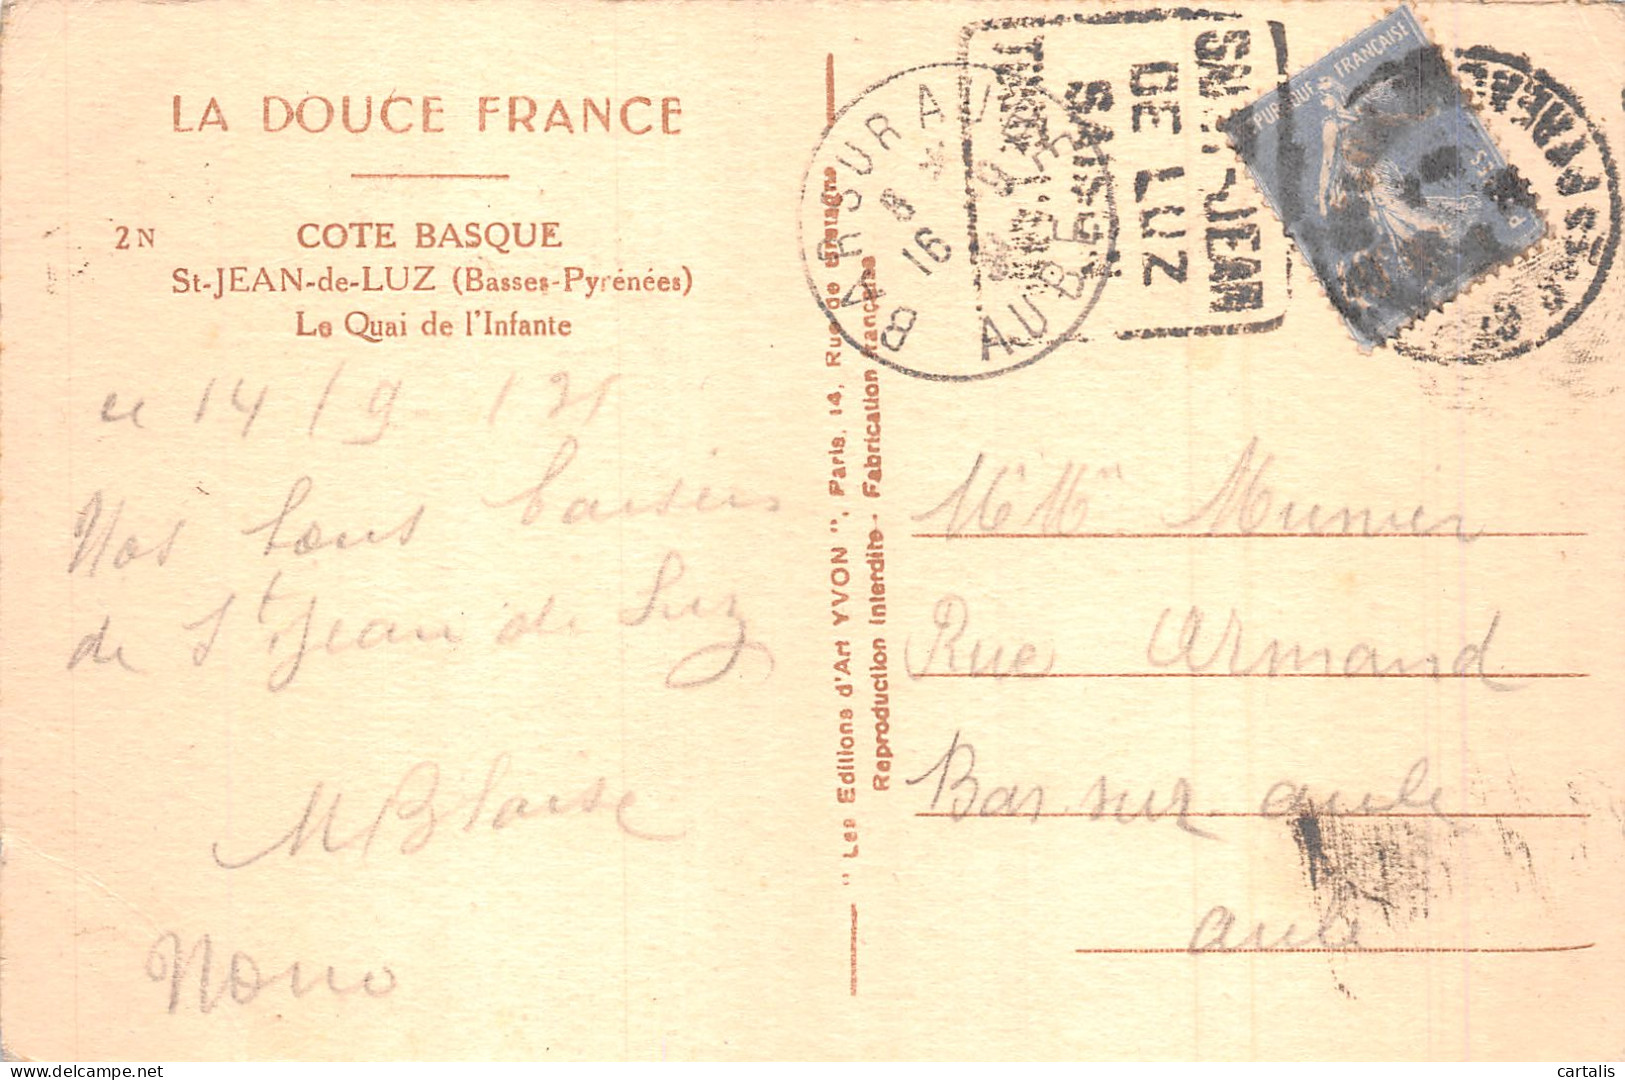 LA DOUCE FRANCE
2 N
COTE BASQUE
St-JEAN-de-LUZ (Basses-Pyrénées)
Le Quai de l'Infante
14 / 9
Nos bons baisers
de St Jean de Luz
M Blaise
Nono
" Les Editions d'Art YVON ", Paris, 14, Rue de Bretagne
Reproduction Interdite - Fabrication Française
BAR SUR AUBE
16
AUBE
SAINT-JEAN
DE LUZ
SAISON
POSTES
FRANÇAISE
Munier
Rue Armand
Bar sur aube
aube
cartalis